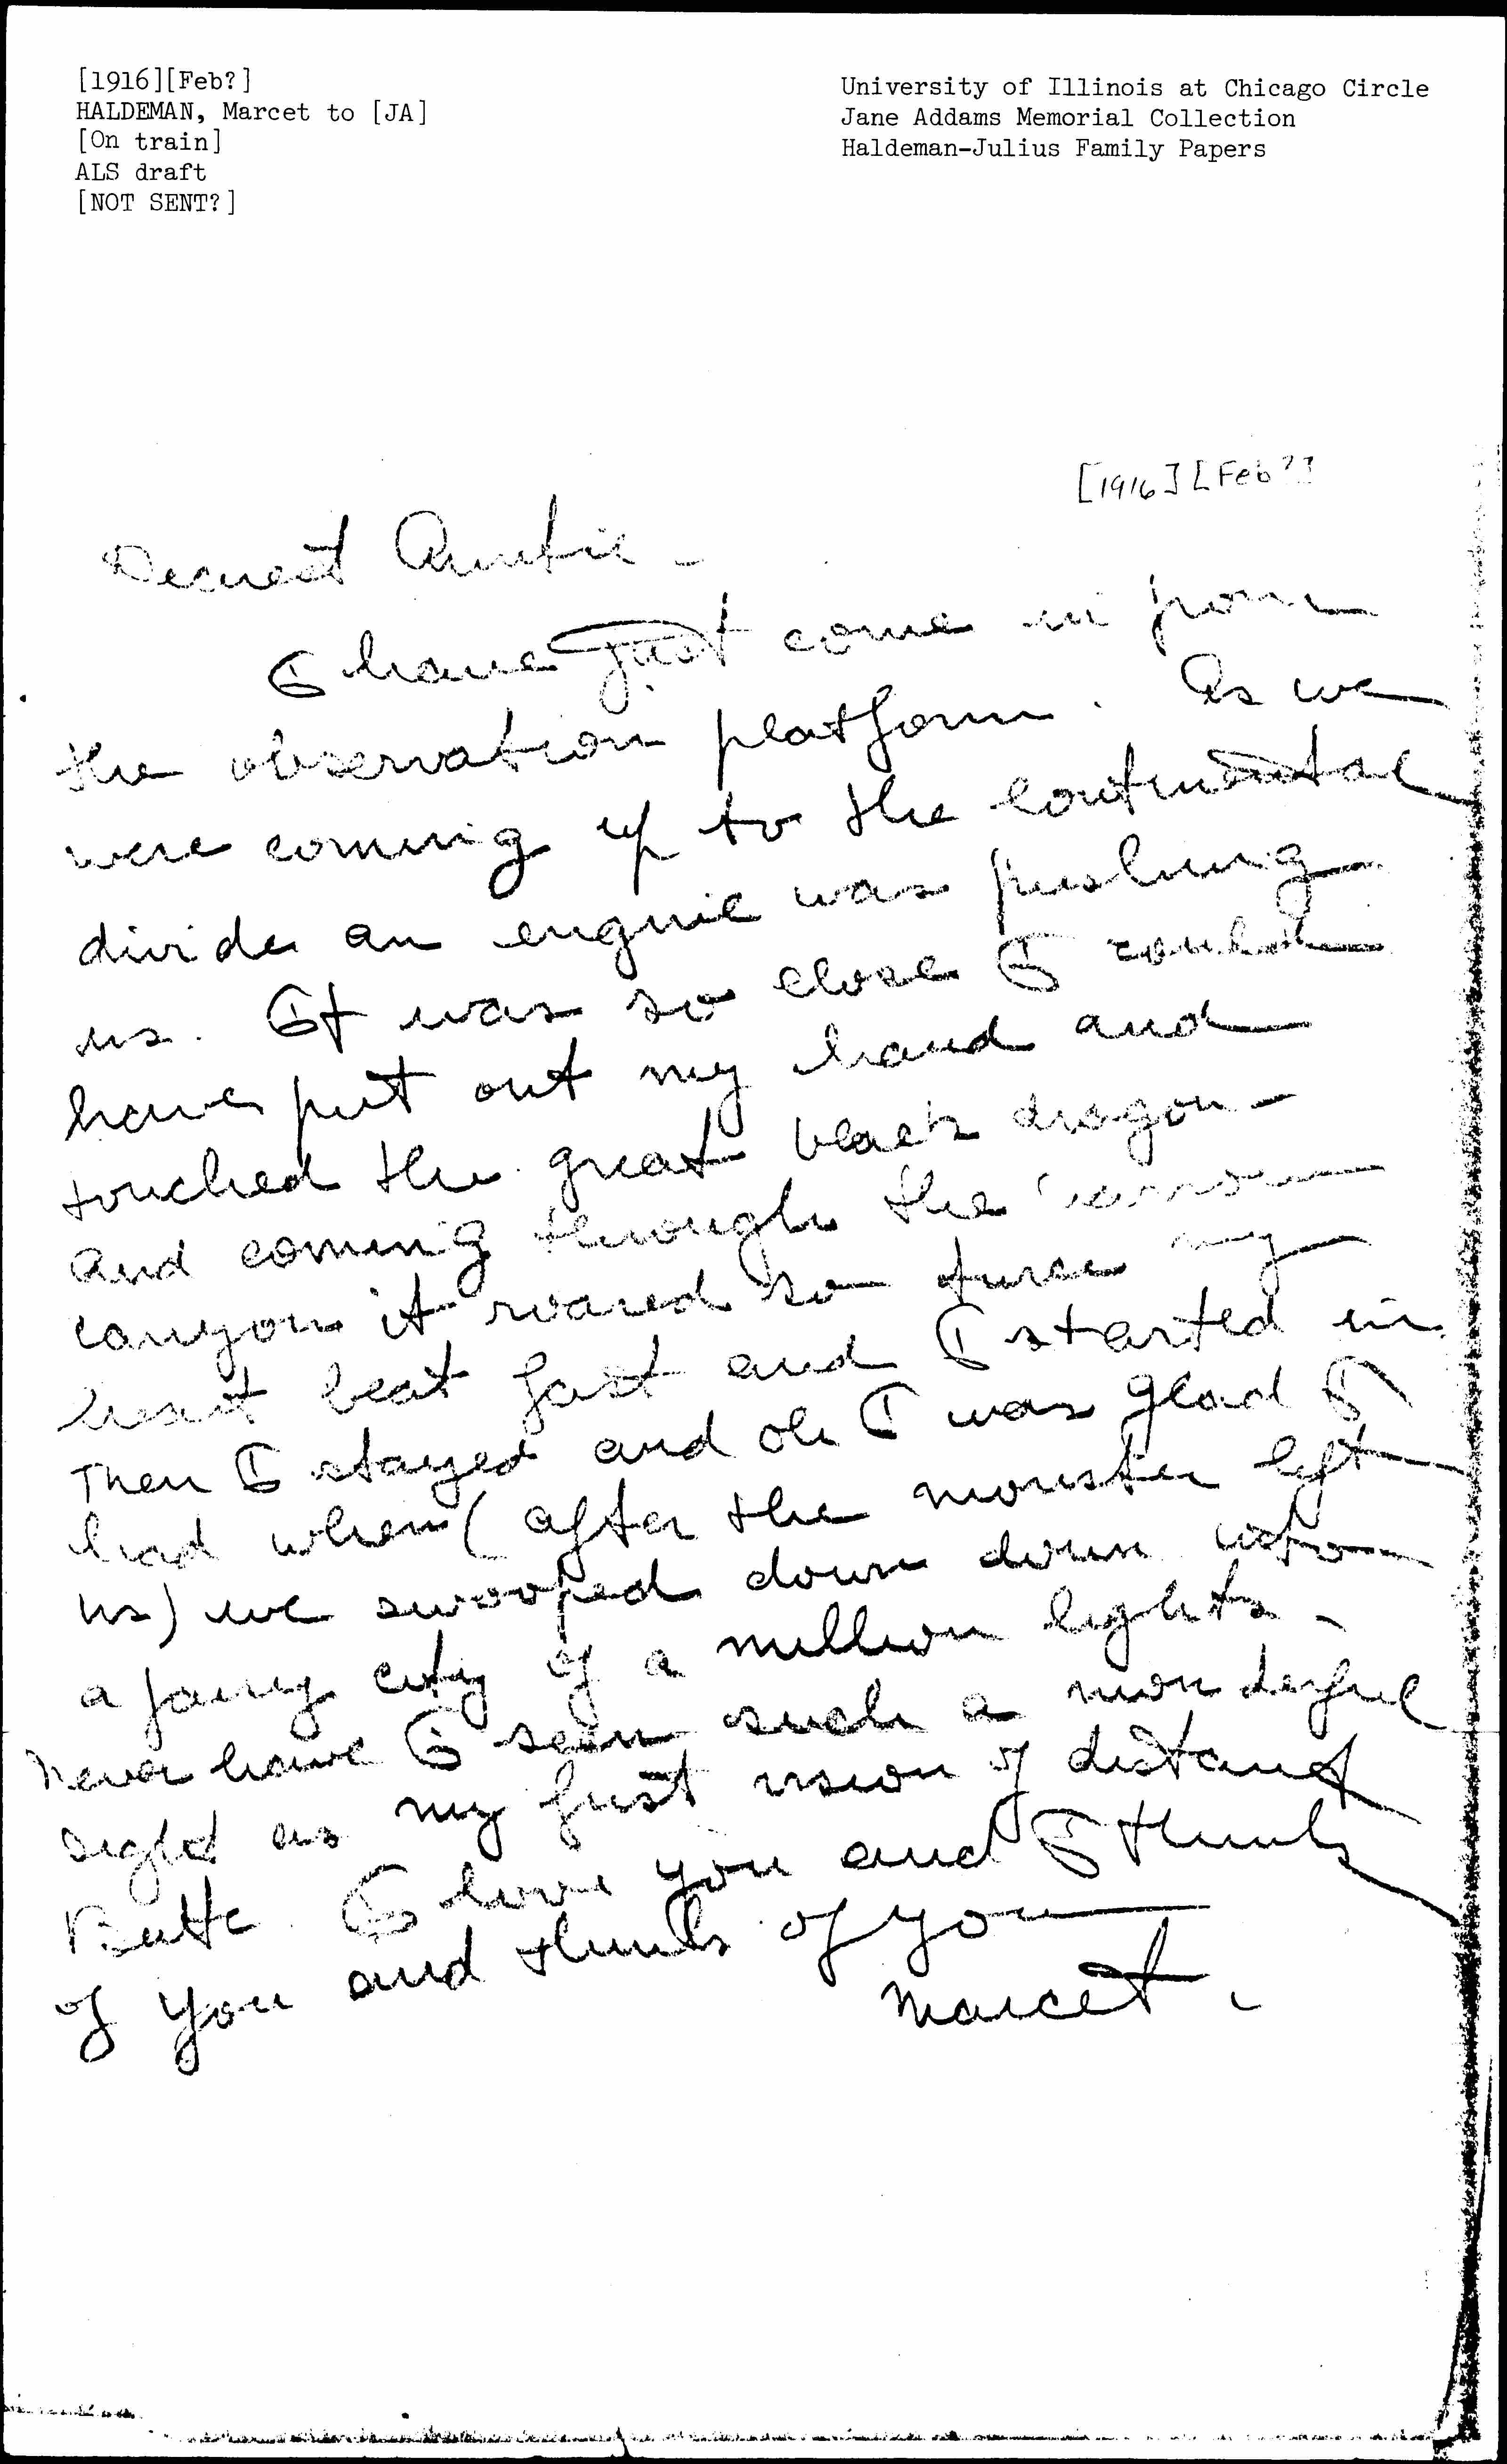 [1916][Feb?]
HALDEMAN, Marcet to [JA]
[On train]
ALS draft
[NOT SENT?]
University of Illinois at Chicago Circle
Jane Addams Memorial Collection
Haldeman-Julius Family Papers
[1916] [Feb?]
Dearest Auntie -
I have just come in from
the observation platform. As we
were coming up to the continental
divide an engine was pushing
us. It was so close I could
have put out my hand and
touched the great black dragon -
and coming through the narrow
canyon it roared so
my
heart beat fast and I started in
Then I stayed and oh I was glad I
had when (after the monster left
us) we swooped down down into
a fairy city of a million lights -
Never have I seen such a wonderful
sight as my first vision of distant
Butte. I love you and I think
of you and think of you
Marcet.